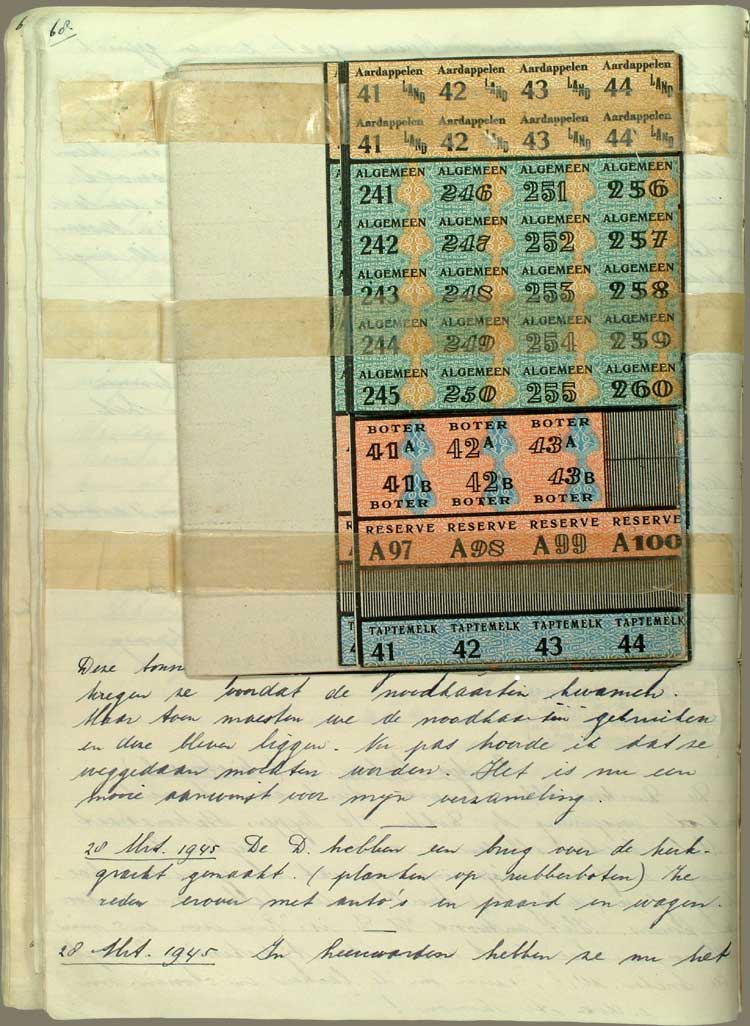 68.
Aardappelen Aardappelen Aardappelen Aardappelen
41 LAND 42 LAND 43 LAND 44 LAND
Aardappelen Aardappelen Aardappelen Aardappelen
41 LAND 42 LAND 43 LAND 44 LAND
ALGEMEEN ALGEMEEN ALGEMEEN ALGEMEEN
241 246 251 256
ALGEMEEN ALGEMEEN ALGEMEEN ALGEMEEN
242 247 252 257
ALGEMEEN ALGEMEEN ALGEMEEN ALGEMEEN
243 248 253 258
ALGEMEEN ALGEMEEN ALGEMEEN ALGEMEEN
244 249 254 259
ALGEMEEN ALGEMEEN ALGEMEEN ALGEMEEN
245 250 255 260
BOTER BOTER BOTER
41A 42A 43A
41B 42B 43B
BOTER BOTER BOTER
RESERVE RESERVE RESERVE RESERVE
A97 A98 A99 A100
TAPTEMELK TAPTEMELK TAPTEMELK TAPTEMELK
41 42 43 44
Deze
kregen ze voordat de noodkaarten kwamen.
Maar toen moesten we de noodkaarten gebruiken
en deze bleven liggen. Nu pas hoorde ik dat ze
weggedaan mochten worden. Het is nu een
mooie aanwinst voor mijn verzameling.
28 Mrt. 1945 De D. hebben een brug over de kerk-
gracht gemaakt. (planken op rubberboten) Ze
reden erover met auto's en paard en wagen.
28 Mrt. 1945 In Leeuwarden hebben ze nu het